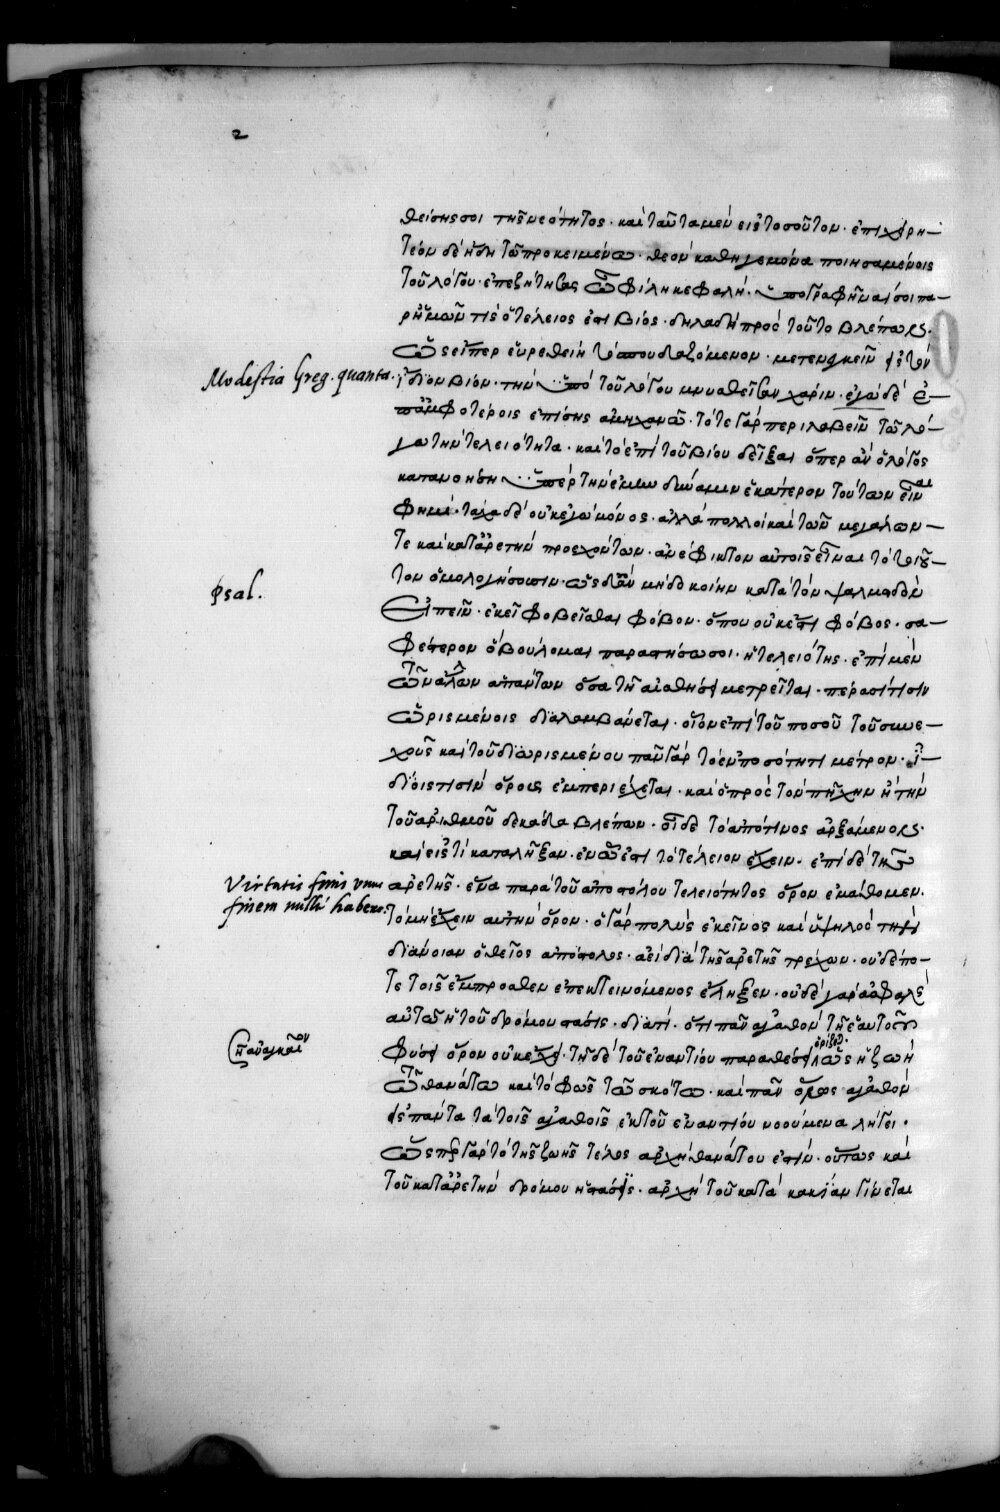 2
θείσης σοι τῆς νεότητος· καὶ ταῦτα μὲν εἰς τοσοῦτον· ἐπιχειρη-
τέον δὲ ἤδη τῶ προκειμένω· θεὸν καθηγεμόνα ποιησαμένοις
τοῦ λόγου· ἐπεζήτησας ὦ φίλη κεφαλή· ὑπογραφῆναί σοι πα-
ρ' ἡμῶν τίς ὁ τέλειος ἐστι βίος· δηλαδὴ πρὸς τοῦτο βλέπων·
ὡς εἴπερ εὑρεθείη τὸ σπουδαζόμενον· μετενεγκεῖν εἰς τὸν
Modestia Greg. quanta.
ἴδιον βίον· τὴν ὑπὸ τοῦ λόγου μηνυθεῖσαν χάριν· ἐγὼ δὲ ἐ-
π' ἀμφοτέροις ἐπίσης ἀμηχανῶ· τό τε γὰρ περιλαβεῖν τῶ λό-
γω τὴν τελειότητα· καὶ τὸ ἐπὶ τοῦ βίου δεῖξαι ὅπερ ἂν ὁ λόγος
κατανοήση ὑπὲρ τὴν ἐμὴν δύναμιν ἑκάτερον τούτων εἶναι
φημί· τάχα δὲ οὐκ ἐγὼ μόνος· ἀλλὰ πολλοὶ καὶ τῶν μεγάλων
τε καὶ κατ' ἀρετὴν προεχόντων· ἀνέφικτον αὐτοῖς εἶναι τὸ τοιοῦ-
τον ὁμολογήσουσιν· ὡς δ' ἂν μὴ δοκοίην κατὰ τὸν ψαλμωδὸν
Psal.
εἰπεῖν· ἐκεῖ φοβεῖσθαι φόβον· ὅπου οὐκ ἔστι φόβος· σα-
φέστερον ὃ βούλομαι παραστήσω σοι· ἡ τελειότης· ἐπὶ μὲν
τῶν ἄλλων ἁπάντων ὅσα τῆ αἰσθήσει μετρεῖται· πέρασί τισιν
ὡρισμένοις διαλαμβάνεται· οἷον ἐπὶ τοῦ ποσοῦ τοῦ συνε-
χοῦς καὶ τοῦ διωρισμένου πᾶν γὰρ τὸ ἐν ποσότητι μέτρον· ἰ-
δίοις τισὶν ὅροις ἐμπεριέχεται· καὶ ὁ πρὸς τὸν πῆχυν ἢ τὴν
τοῦ ἀριθμοῦ δεκάδα βλέπων· οἶδε τὸ ἀπό τινος ἀρξάμενον·
καὶ εἴς τι καταλῆξαν· ἐν ὧ ἐστι τὸ τέλειον ἔχειν· ἐπὶ δὲ τῆς
Virtutis finis unus
finem nullum habere.
ἀρετῆς· ἕνα παρὰ τοῦ ἀποστόλου τελειότητος ὅρον ἐμάθομεν·
τὸ μὴ ἔχειν αὐτὴν ὅρον· ὁ γὰρ πολὺς ἐκεῖνος καὶ ὑψηλὸς τὴν
διάνοιαν ὁ θεῖος ἀπόστολος· ἀεὶ διὰ τῆς ἀρετῆς τρέχων· οὐδέπο-
τε τοῖς ἔμπροσθεν ἐπεκτεινόμενος ἔληξεν· οὐδὲ γὰρ ἀσφαλὲς
αὐτῶ ἡ τοῦ δρόμου στάσις· διὰ τί· ὅτι πᾶν ἀγαθὸν τῆ ἑαυτοῦ
φύσει ὅρον οὐκ ἔχει· τῆ δὲ τοῦ ἐναντίου παραθέσει ὁρίζεται· ὡς ἡ ζωὴ
τῶ θανάτω καὶ τὸ φῶς τῶ σκότω· καὶ πᾶν ὅλως ἀγαθὸν
εἰς πάντα τὰ τοῖς ἀγαθοῖς ἐκ τοῦ ἐναντίου νοούμενα λήγει·
ὥσπερ γὰρ τὸ τῆς ζωῆς τέλος ἀρχὴ θανάτου ἐστίν· οὕτως καὶ
τοῦ κατ' ἀρετὴν δρόμου ἡ στάσις· ἀρχὴ τοῦ κατὰ κακίαν γίνεται